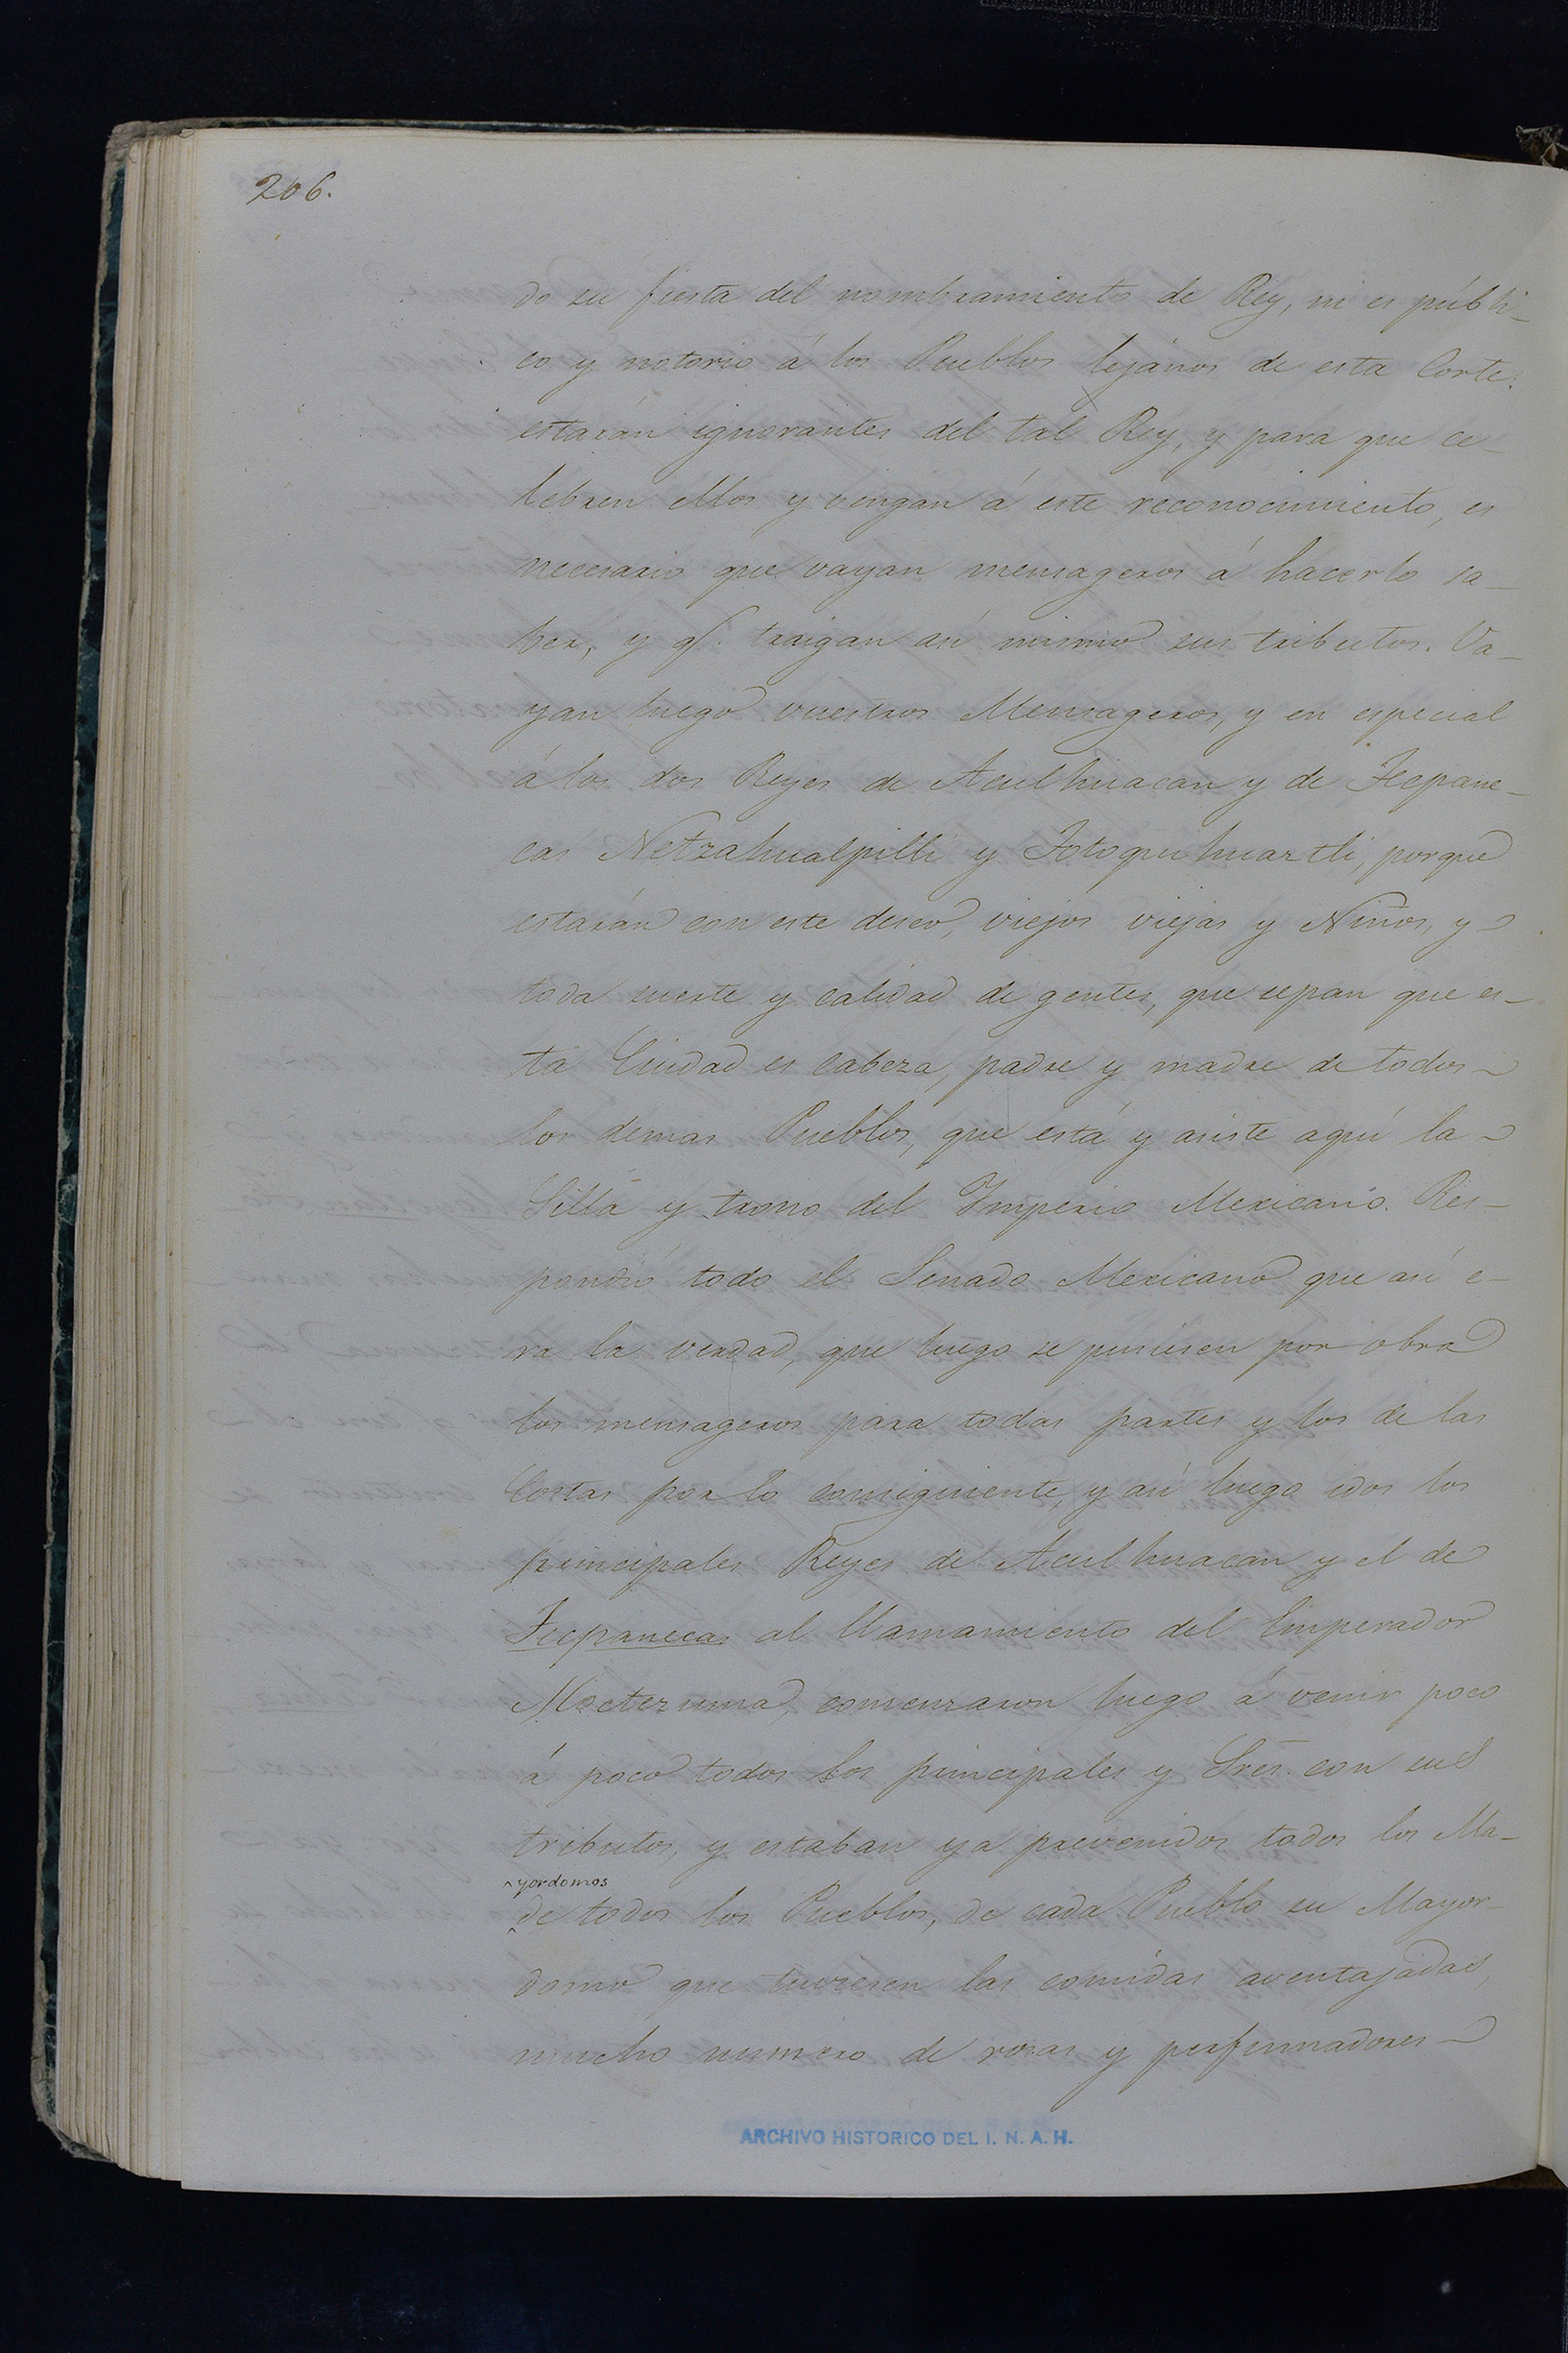 206.
do su fiesta del nombramiento de Rey, ni es públi-
co y notorio á los Pueblos lejános de esta Corte:
estarán ignorantes del tal Rey, y para que ce-
lebren ellos y vengan á este reconocimiento, es
necesario que vayan mensageros á hacerlo sa-
ber, y q.e traigan asi mismo sus tributos. Va-
yan luego vuestros Mensageros, y en especial
á los dos Reyes de Aculhuacan y de Tecpane-
cas Netzahualpilli y Totoquihuaztli, porque
estarán con este deseo, viejos viejas y Niños, y
toda suerte y calidad de gentes, que sepan que es-
ta Ciudad es cabeza, padre y madre de todos
los demas Pueblos, que está y asiste aquí la
Silla y trono del Imperio Mexicano. Res-
pondió todo el Senado Mexicano que asi e-
ra la verdad, que luego se pusiesen por obra
los mensageros para todas partes y los de las
Costas por lo consiguiente, y asi luego idos los
principales Reyes de Aculhuacan y el de
Tecpanecas al llamamiento del Emperador
Moctezuma, comenzaron luego á venir poco
á poco todos los principales y Sres. con sus
tributos, y estaban ya prevenidos todos los Ma-
^yordomos
de todos los Pueblos, de cada Pueblo su Mayor-
domo que tuviesen las comidas aventajadas,
mucho numero de rosas y perfumadores
ARCHIVO HISTORICO DEL I. N. A. H.